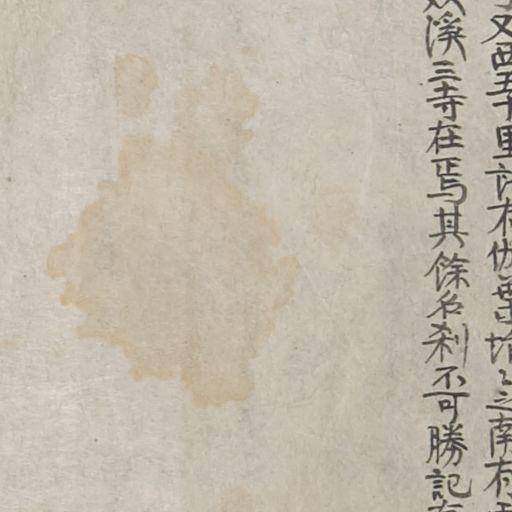 又西五十里許有伽葉塔〻之南有
溪三寺在焉其餘名刹不可勝記